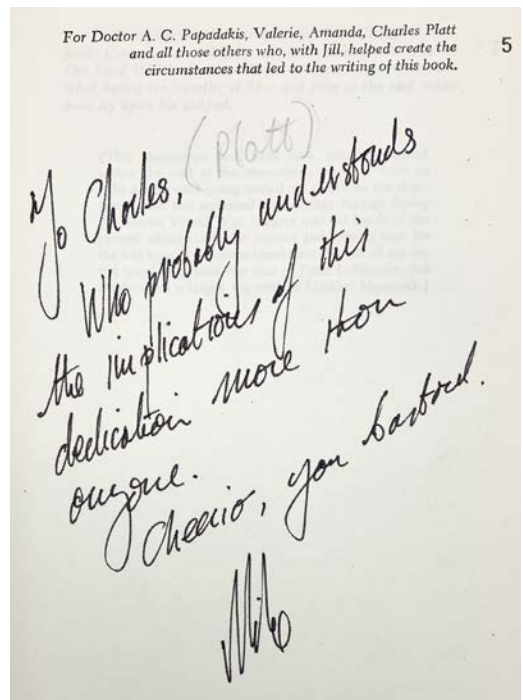 For Doctor A. C. Papadakis, Valerie, Amanda, Charles Platt
and all those others who, with Jill, helped create the
circumstances that led to the writing of this book.
5
(Platt)
To Charles,
Who probably understands
the implications of this
dedication more than
anyone.
Cheerio, you bastard.
Mike